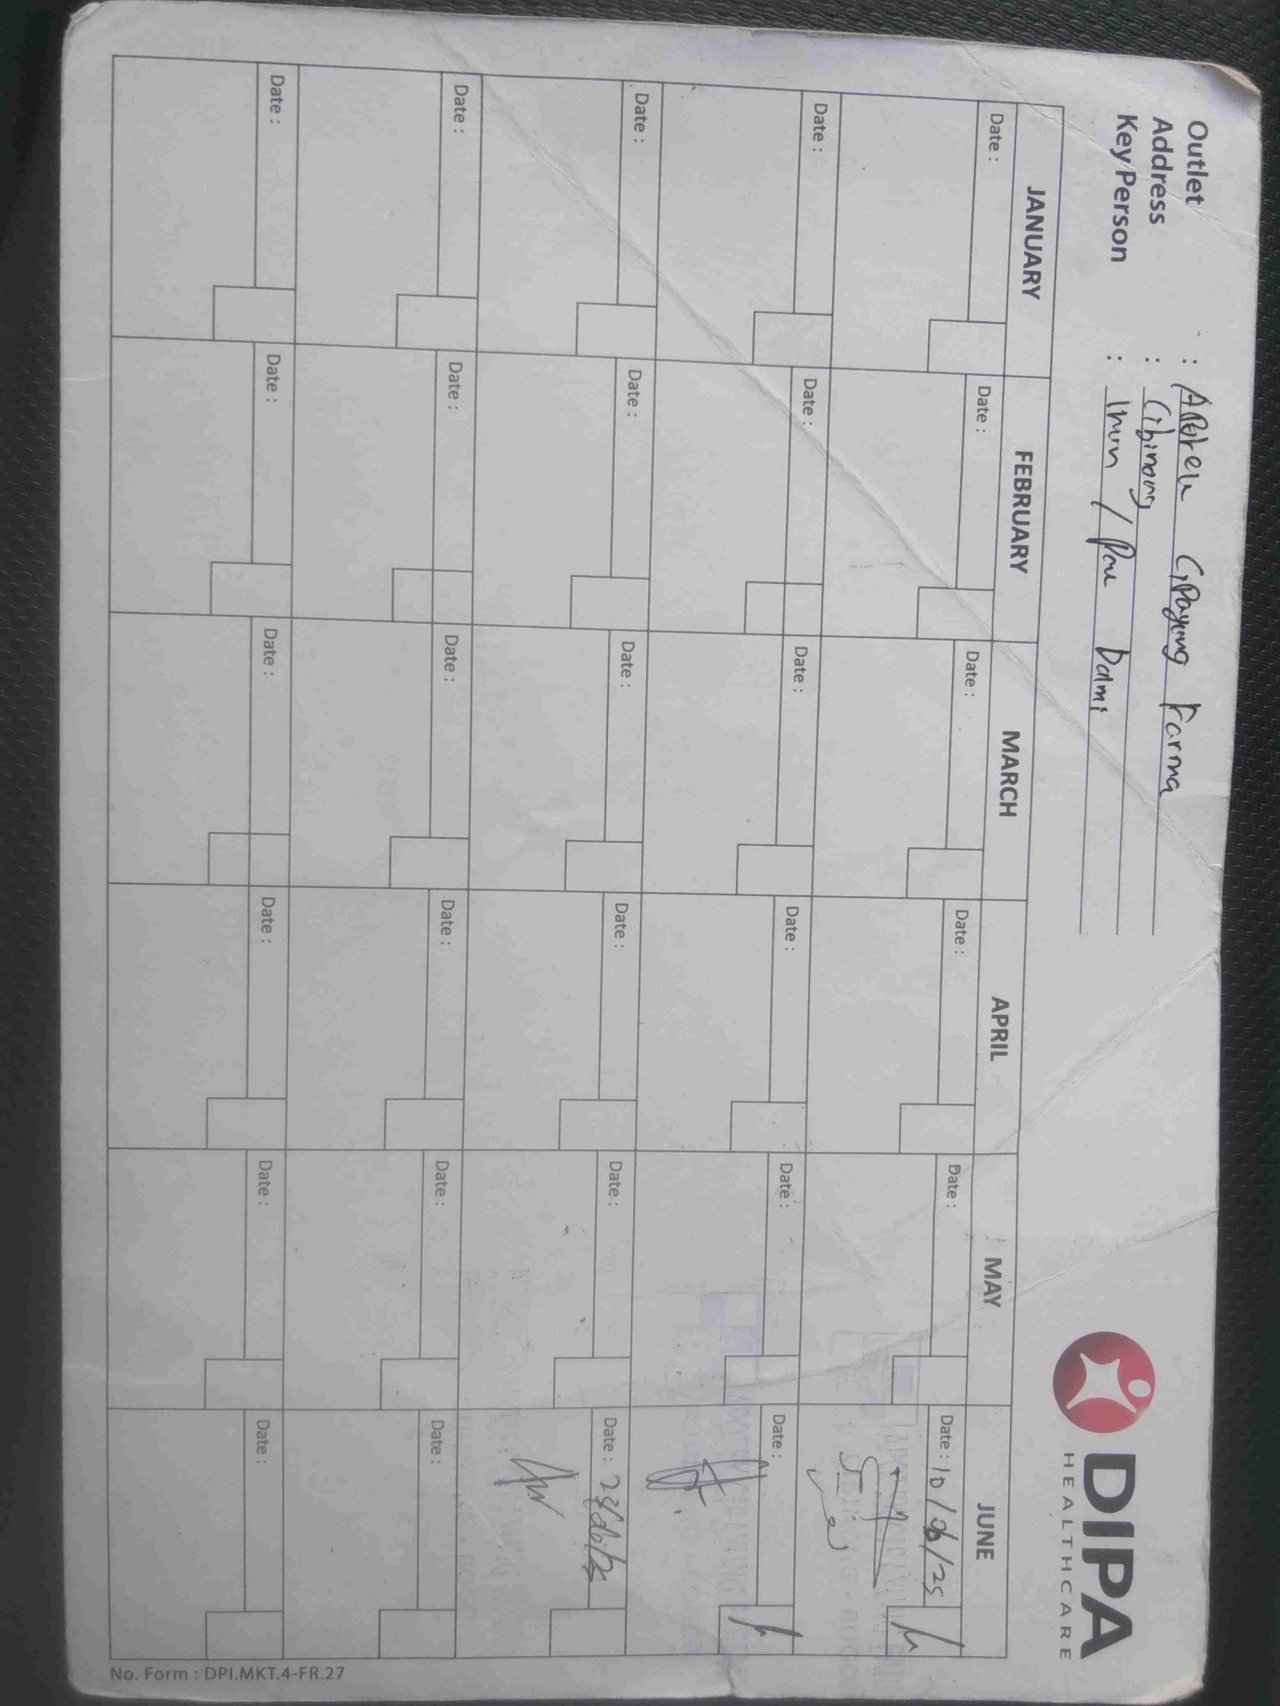 Outlet :
Address : Cibinong
Key Person : / Dami
DIPA
HEALTHCARE
JANUARY FEBRUARY MARCH APRIL MAY JUNE
Date : Date : Date : Date : Date : Date : 10/06/25
Date : Date : Date : Date : Date : Date :
Date : Date : Date : Date : Date : Date :
Date : Date : Date : Date : Date : Date :
Date : Date : Date : Date : Date : Date :
No. Form : DPI.MKT.4-FR.27